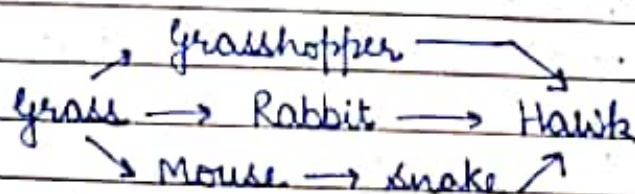 Grasshopper
Grass → Rabbit → Hawk
Mouse → snake